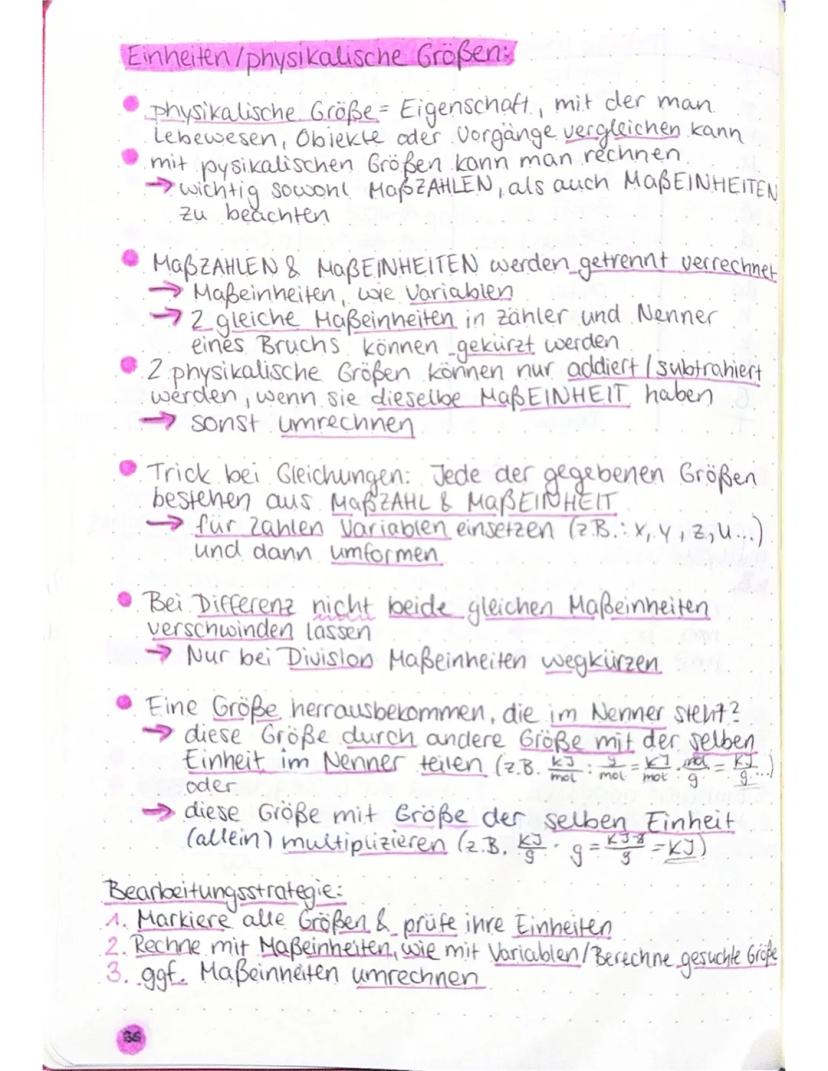 Einheiten/physikalische Größen:
physikalische Größe = Eigenschaft, mit der man
Lebewesen, Objekte oder Vorgänge vergleichen kann
mit pysikalischen Größen kann man rechnen
→ wichtig sowohl MaßZAHLEN, als auch MaßEINHEITEN
zu beachten
MaßZAHLEN & MaßEINHEITEN werden getrennt verrechnet
→ Maßeinheiten, wie Variablen
→ 2 gleiche Maßeinheiten in Zähler und Nenner
eines Bruchs können gekürzt werden
2 physikalische Größen können nur addiert/subtrahiert
werden, wenn sie dieselbe MaßEINHEIT haben
→ sonst umrechnen
Trick bei Gleichungen: Jede der gegebenen Größen
bestehen aus MaßZAHL & MaßEINHEIT
→ für Zahlen Variablen einsetzen (z.B.: x, y, z, u...)
und dann umformen
Bei Differenz nicht beide gleichen Maßeinheiten
verschwinden lassen
→ Nur bei Division Maßeinheiten wegkürzen
Eine Größe herrausbekommen, die im Nenner steht?
→ diese Größe durch andere Größe mit der selben
Einheit im Nenner teilen (z.B. kJ/mol : g/mol = kJ/mol · mol/g = kJ/g ...)
oder
→ diese Größe mit Größe der selben Einheit
(allein) multiplizieren (z.B. kJ/g · g = kJ·g/g = kJ)
Bearbeitungsstrategie:
1. Markiere alle Größen & prüfe ihre Einheiten
2. Rechne mit Maßeinheiten, wie mit Variablen/Berechne gesuchte Größe
3. ggf. Maßeinheiten umrechnen